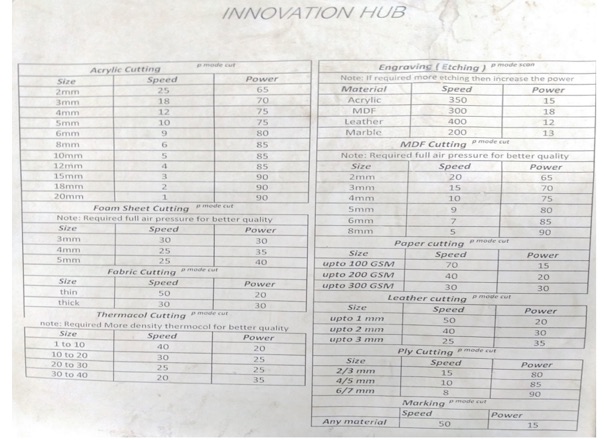 INNOVATION HUB
Acrylic Cutting p mode cut
Size Speed Power
2mm 25 65
3mm 18 70
4mm 12 75
5mm 10 75
6mm 9 80
8mm 6 85
10mm 5 85
12mm 4 85
15mm 3 90
18mm 2 90
20mm 1 90
Foam Sheet Cutting p mode cut
Note: Required full air pressure for better quality
Size Speed Power
3mm 30 30
4mm 25 35
5mm 25 40
Fabric Cutting p mode cut
Size Speed Power
thin 50 20
thick 30 30
Thermacol Cutting p mode cut
note: Required More density thermocol for better quality
Size Speed Power
1 to 10 40 20
10 to 20 30 25
20 to 30 25 25
30 to 40 20 35
Engraving ( Etching ) p mode scan
Note: If required more etching then increase the power
Material Speed Power
Acrylic 350 15
MDF 300 18
Leather 400 12
Marble 200 13
MDF Cutting p mode cut
Note: Required full air pressure for better quality
Size Speed Power
2mm 20 65
3mm 15 70
4mm 10 75
5mm 9 80
6mm 7 85
8mm 5 90
Paper cutting p mode cut
Size Speed Power
upto 100 GSM 70 15
upto 200 GSM 40 20
upto 300 GSM 30 30
Leather cutting p mode cut
Size Speed Power
upto 1 mm 50 20
upto 2 mm 40 30
upto 3 mm 25 35
Ply Cutting p mode cut
Size Speed Power
2/3 mm 15 80
4/5 mm 10 85
6/7 mm 8 90
Marking p mode cut
Speed Power
Any material 50 15